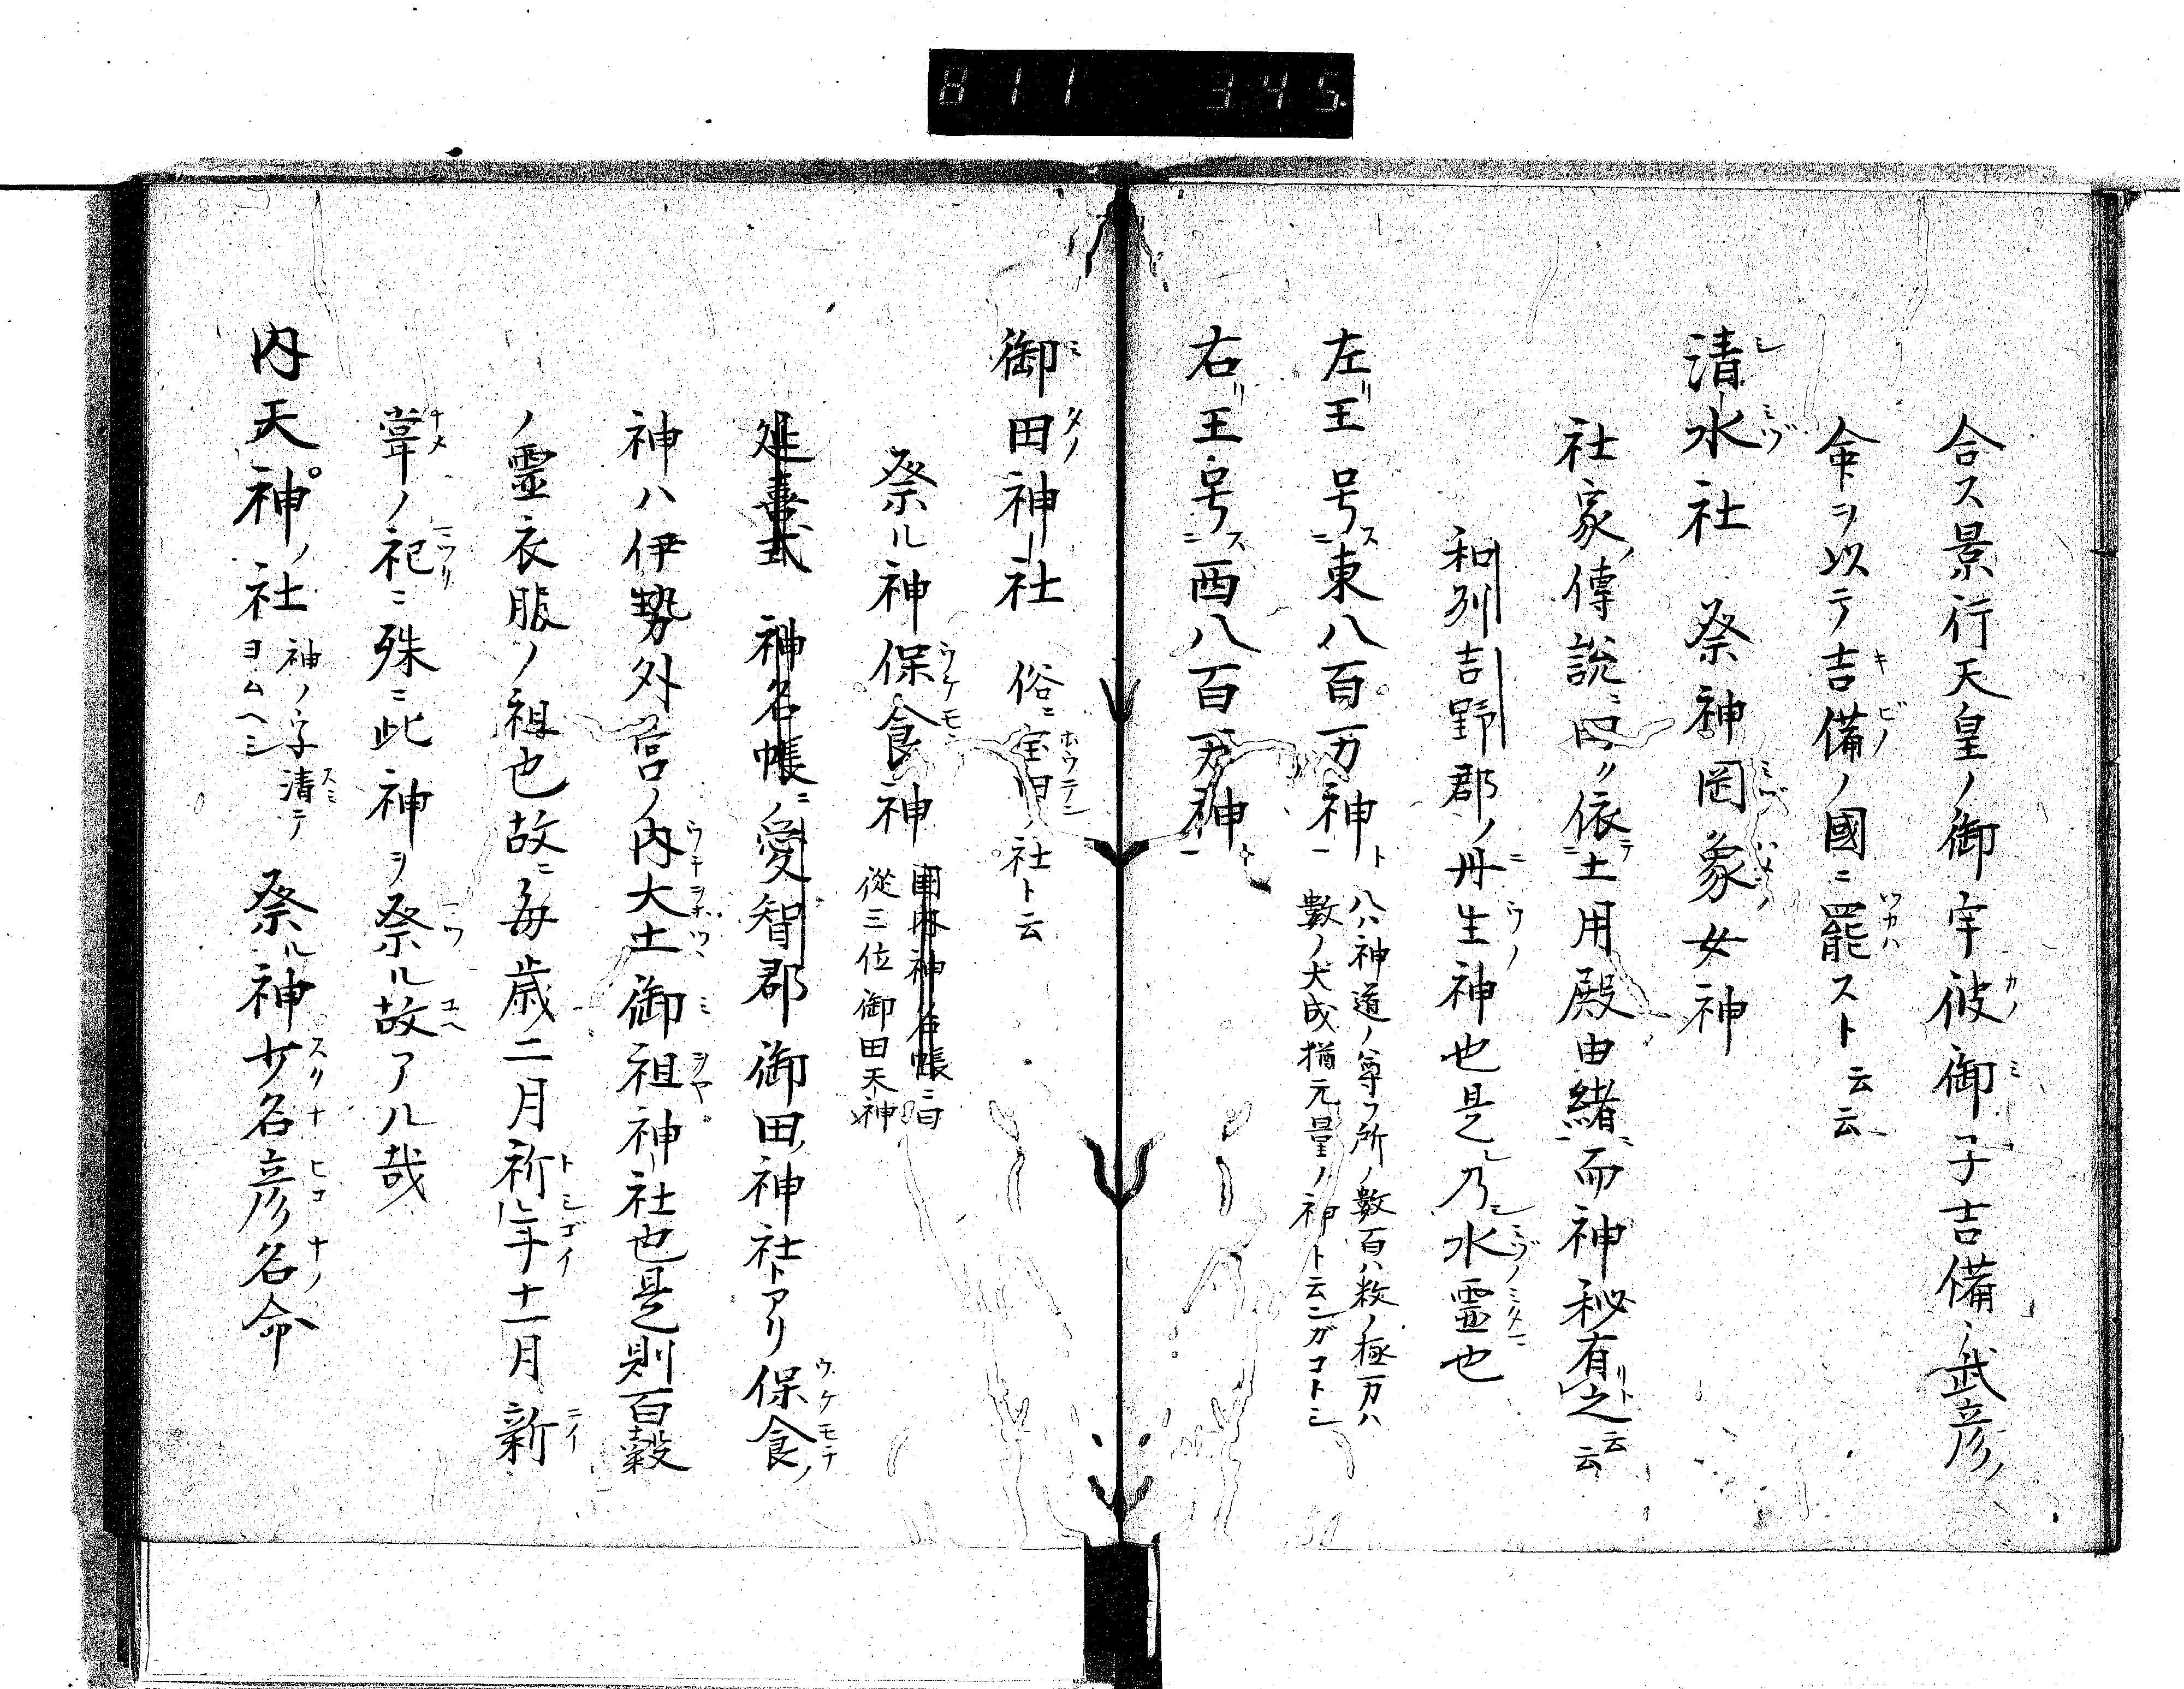 811 345
合ス景行天皇ノ御宇彼御子吉備ノ武彦ノ
命ヲ以テ吉備ノ國ニ罷スト云云
清水社 祭神罔象女神
社家ノ傳説ニ曰ク依テ土用殿由緒ニ而神秘有之ト云云
和州吉野郡ノ丹生神也是乃水霊也
左王号ニス東八百万神ト
八ハ神道ノ尊フ所ノ數百ハ数ノ極万ハ
數ノ大成猶元量ノ神ト云ンガコトシ
右王号ニス西八百万神ト
御田神社 俗ニ宝田ノ社ト云
祭ル神保食神
國内神名帳ニ曰
從三位御田天神
延喜式 神名帳ニノ愛智郡御田神社トアリ保食ノ
神ハ伊勢外宮ノ内大土御祖神社也是則百穀
ノ霊衣服ノ祖也故ニ毎歳二月祈年十一月新
甞ノ祀ニ殊ニ此神ヲ祭ル故アル哉
内天神ノ社
神ノ字清テ
ヨムヘシ
祭ル神少名彦名命